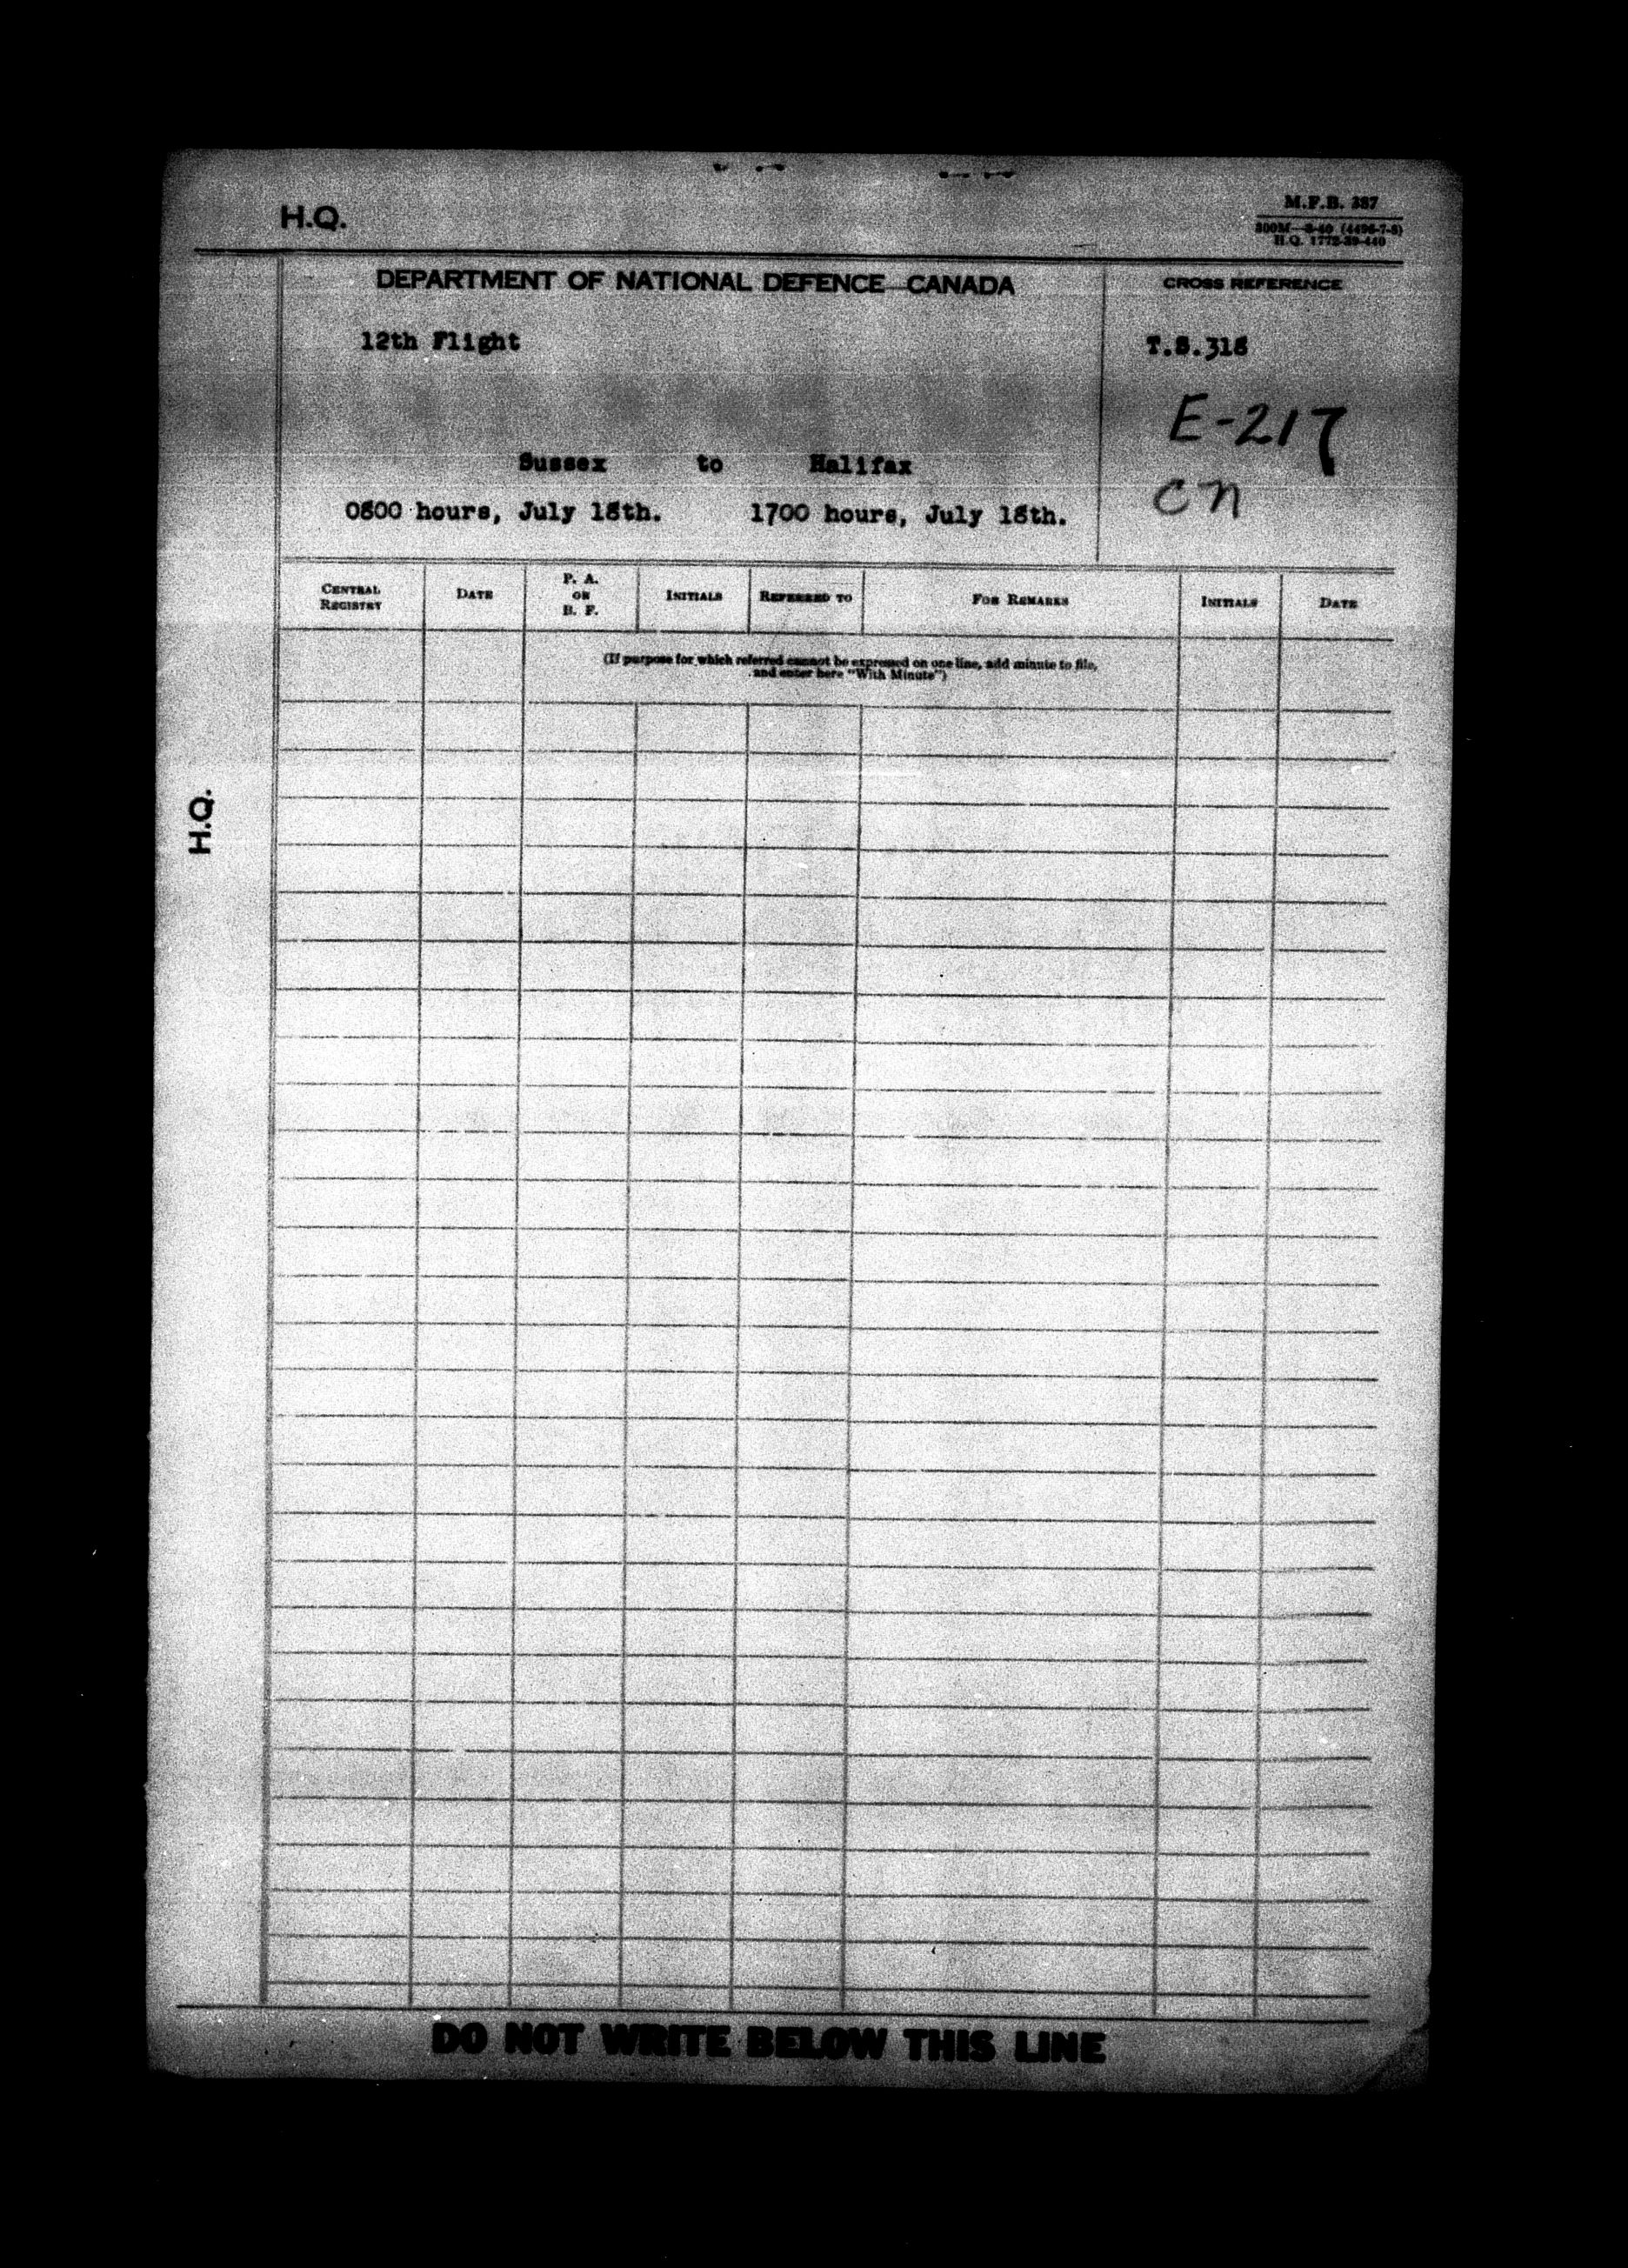 H.Q.
M.F.B. 387
300M—8-40 (4496-7-8)
H.Q. 1772-39-440
DEPARTMENT OF NATIONAL DEFENCE CANADA
CROSS REFERENCE
12th Flight
T.S.318
E-217
CN
Sussex to Halifax
0800 hours, July 18th. 1700 hours, July 18th.
CENTRAL REGISTRY
DATE
P. A. OR B. F.
INITIALS
REFERRED TO
FOR REMARKS
INITIALS
DATE
(If purpose for which referred cannot be expressed on one line, add minute to file,
and enter here "With Minute")
H.Q.
DO NOT WRITE BELOW THIS LINE